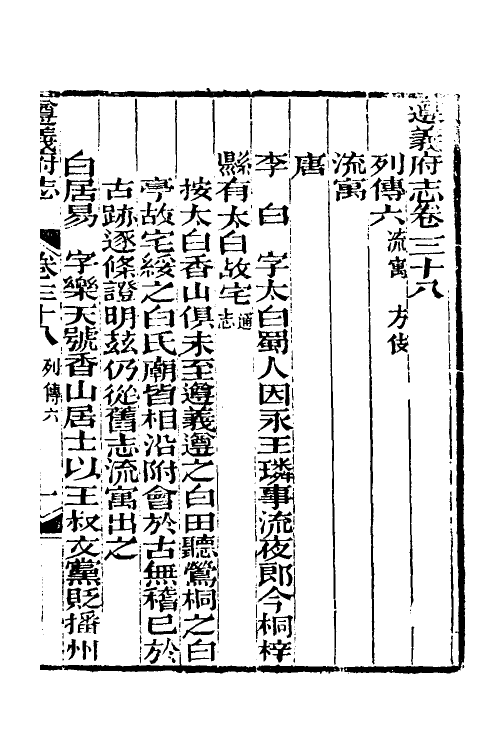 遵義府志卷三十八
列傳六 流寓 方伎
流寓
唐
李白 字太白蜀人因永王璘事流夜郎今桐梓
縣有太白故宅通志
按太白香山俱未至遵義遵之白田聽鶯桐之白
亭故宅綏之白氏廟皆相沿附會於古無稽已於
古跡逐條證明茲仍從舊志流寓出之
白居易 字樂天號香山居士以王叔文黨貶播州
遵義府志 卷三十八 列傳六 一